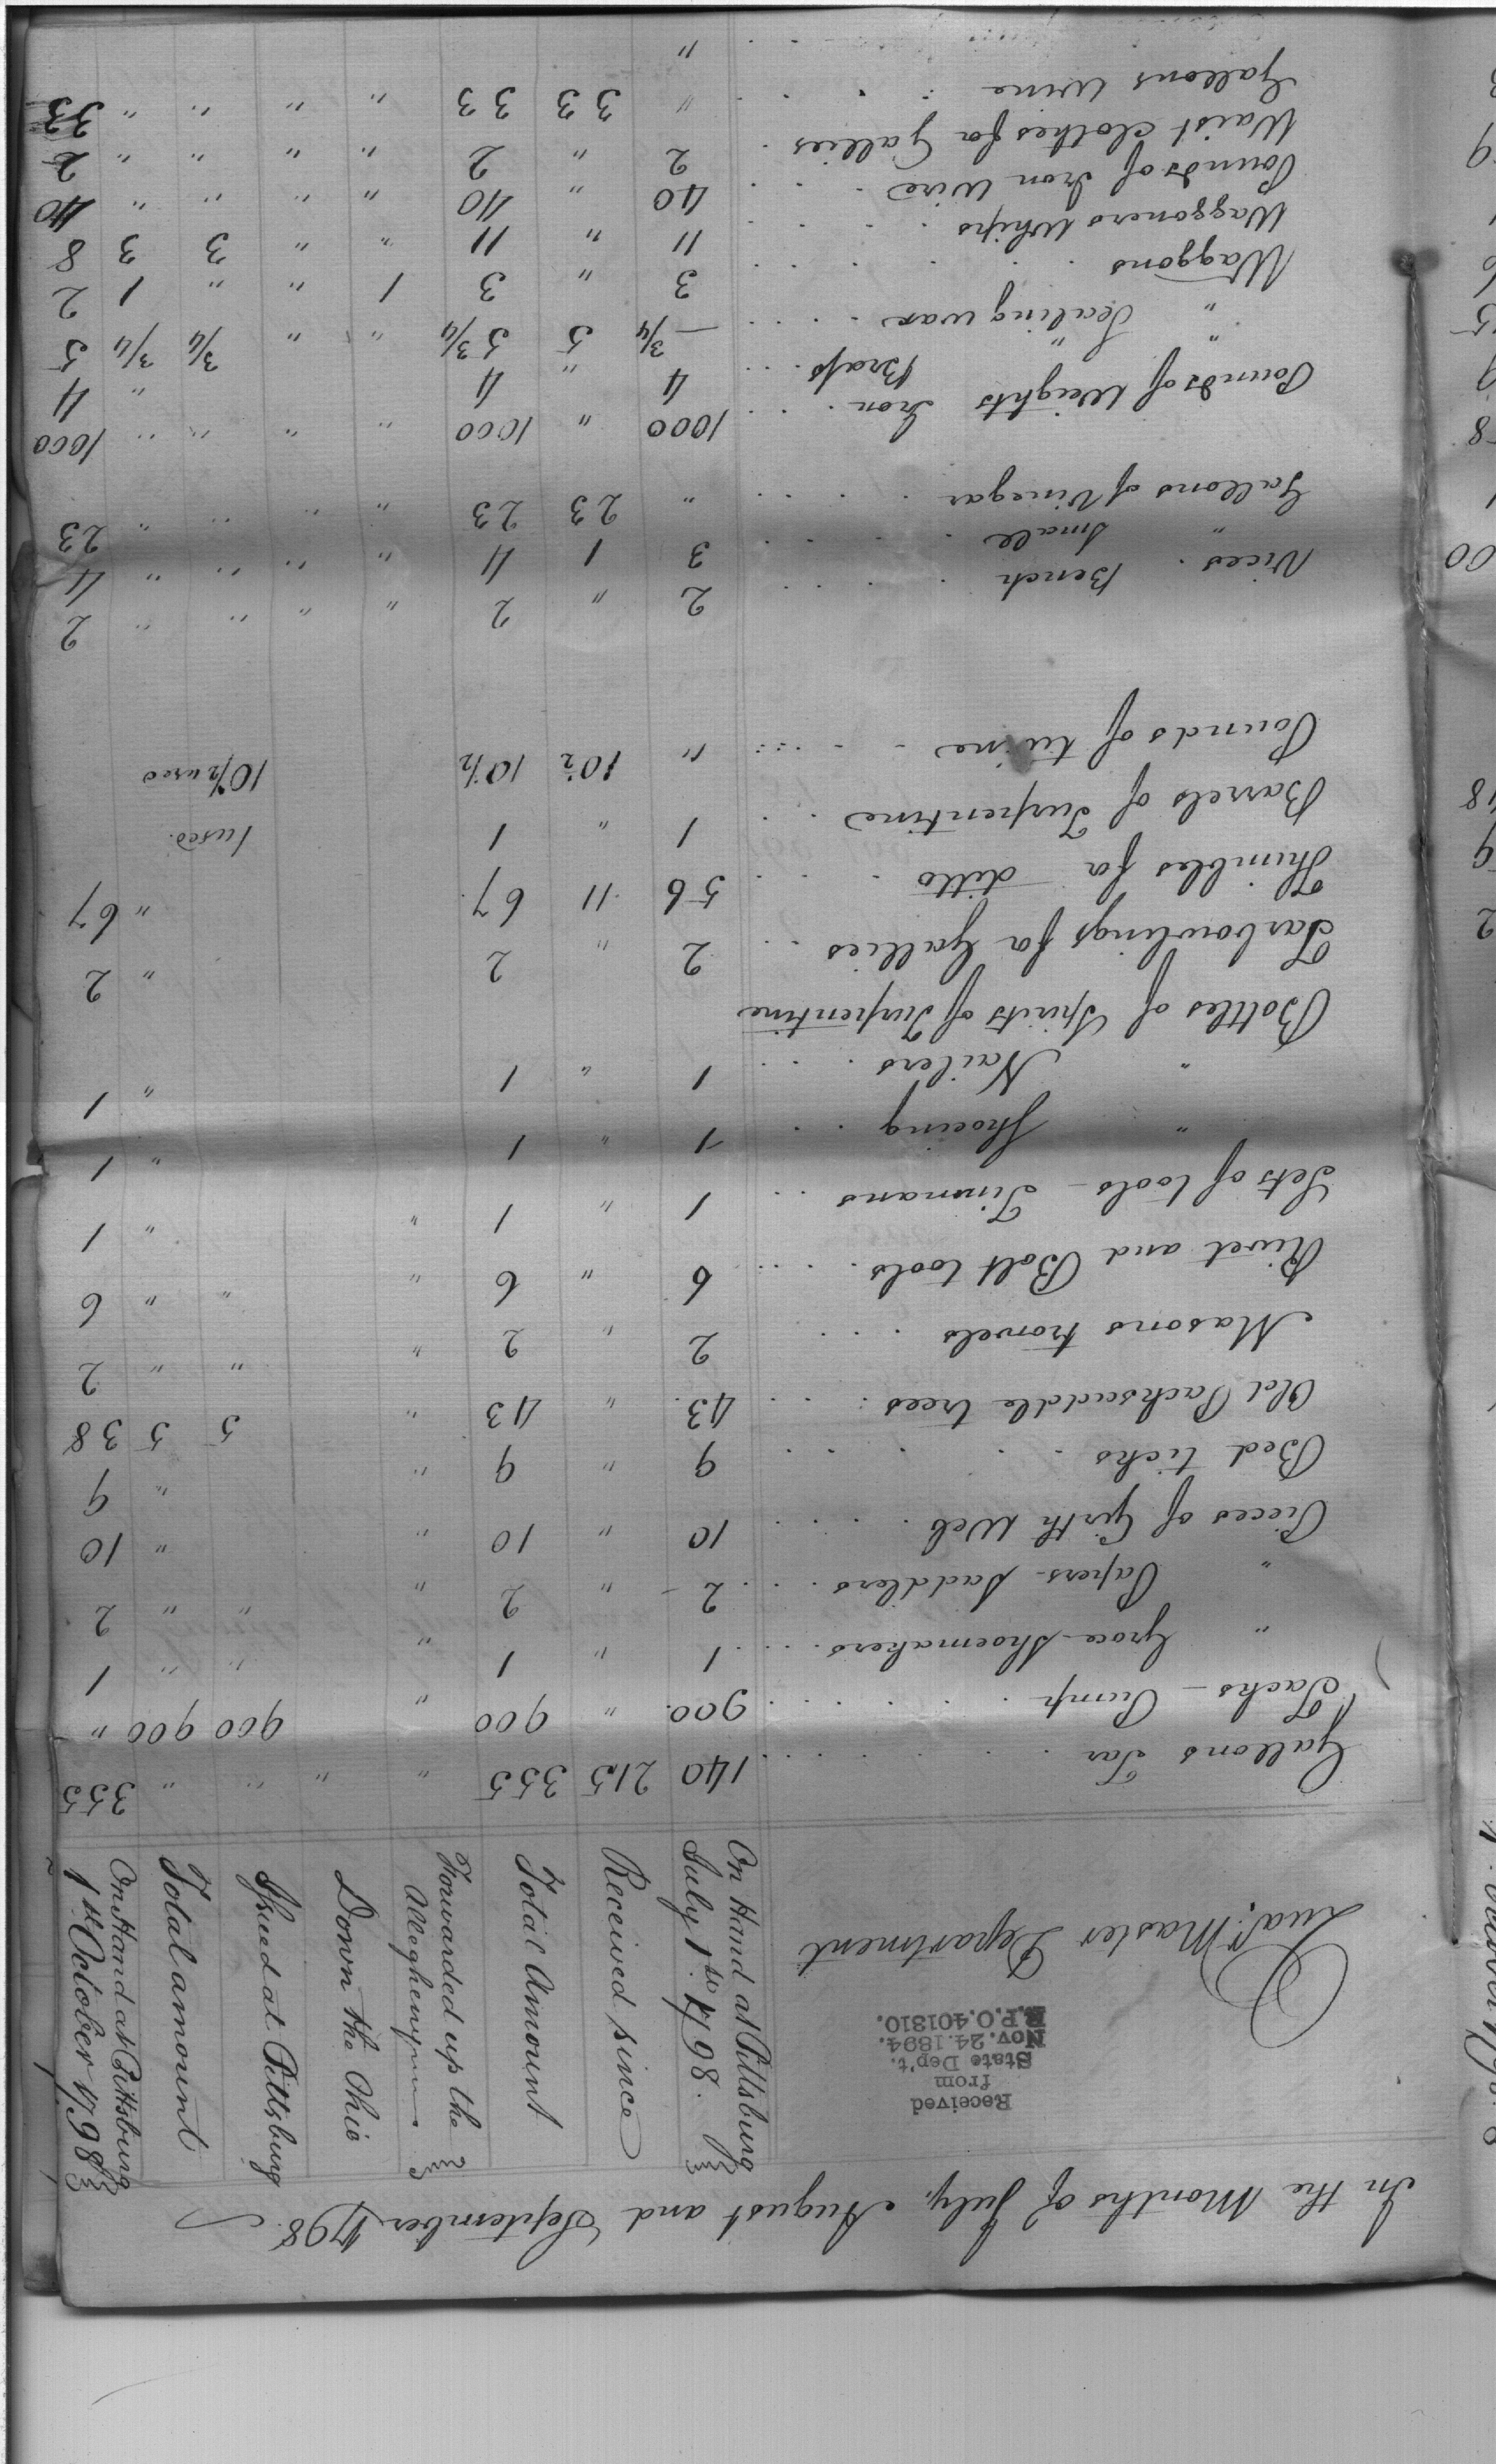 In the Months of July, August and September 1798.
Received
from
State Dep't.
Nov. 24. 1894.
R.P.O. 401810.
Quar. Master Department
On Hand at Pittsburg July 1st 1798.
Received since
Total Amount
Forwarded up the Allegheny
Down the Ohio
Issued at Pittsburg
Total amount
On Hand at Pittsburg 1st October 1798
Gallons Tar 140 215 355 " " " " 355
Tacks - Pump 900 " 900 " 900 900 "
" Groce Shoemakers 1 " 1 " " " 1
" Papers Saddlers 2 " 2 " " " 2
Pieces of Girth Web 10 " 10 " " 10
Bed ticks 9 " 9 " " 9
Old Packsaddle trees 43 " 43 " 5 5 38
Masons trowels 2 " 2 " " " 2
Rivet and Bolt tools 6 " 6 " " " 6
Sets of tools - Tinmans 1 " 1 " " 1
" Shoeing 1 " 1 " 1
" Nailers 1 " 1 " 1
Bottles of Spirits of Turpentine
Tarbowlings for Gallies 2 " 2 " 2
Thimbles for ditto 56 11 67 " 67
Barrels of Turpentine 1 " 1 1 used.
Pounds of twine " 10½ 10½ 10½ used
Vices. Bench 2 " 2 " " " " 2
" Small 3 1 4 " " " " 4
Gallons of Vinegar " 23 23 " " " " 23
Pounds of Weights Iron 1000 " 1000 " " " " 1000
Brass 4 " 4 " 4
" Sealing wax ¾ 5 5¾ " " ¾ ¾ 5
Waggons 3 " 3 1 " " 1 2
Waggoners Whips 11 " 11 " " 3 3 8
Pounds of Iron Wire 40 " 40 " " " " 40
Waist clothes for Gallies 2 " 2 " " " " 2
Gallons Wine " 33 33 " " " " 33